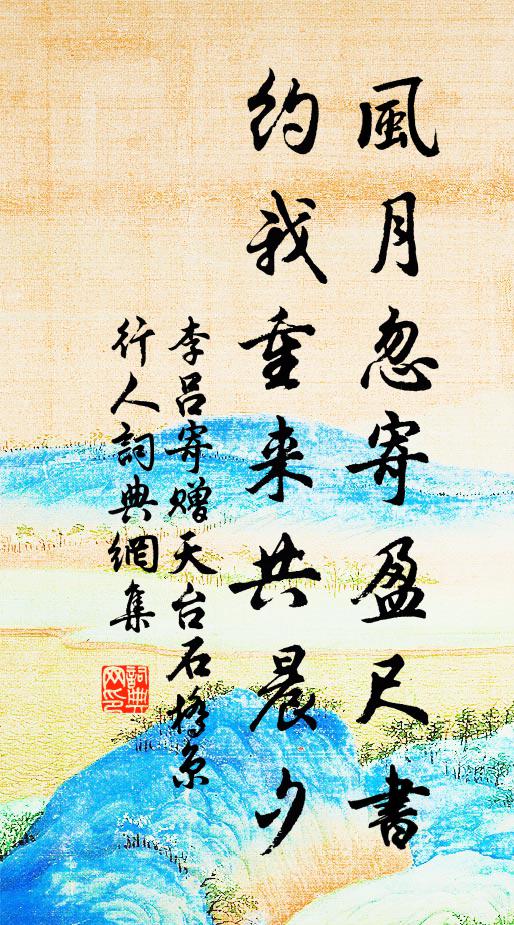 風月忽寄盈尺書
約我重来共晨夕
李吕寄贈天台石橋京
行人詞典網集
詞典
网印